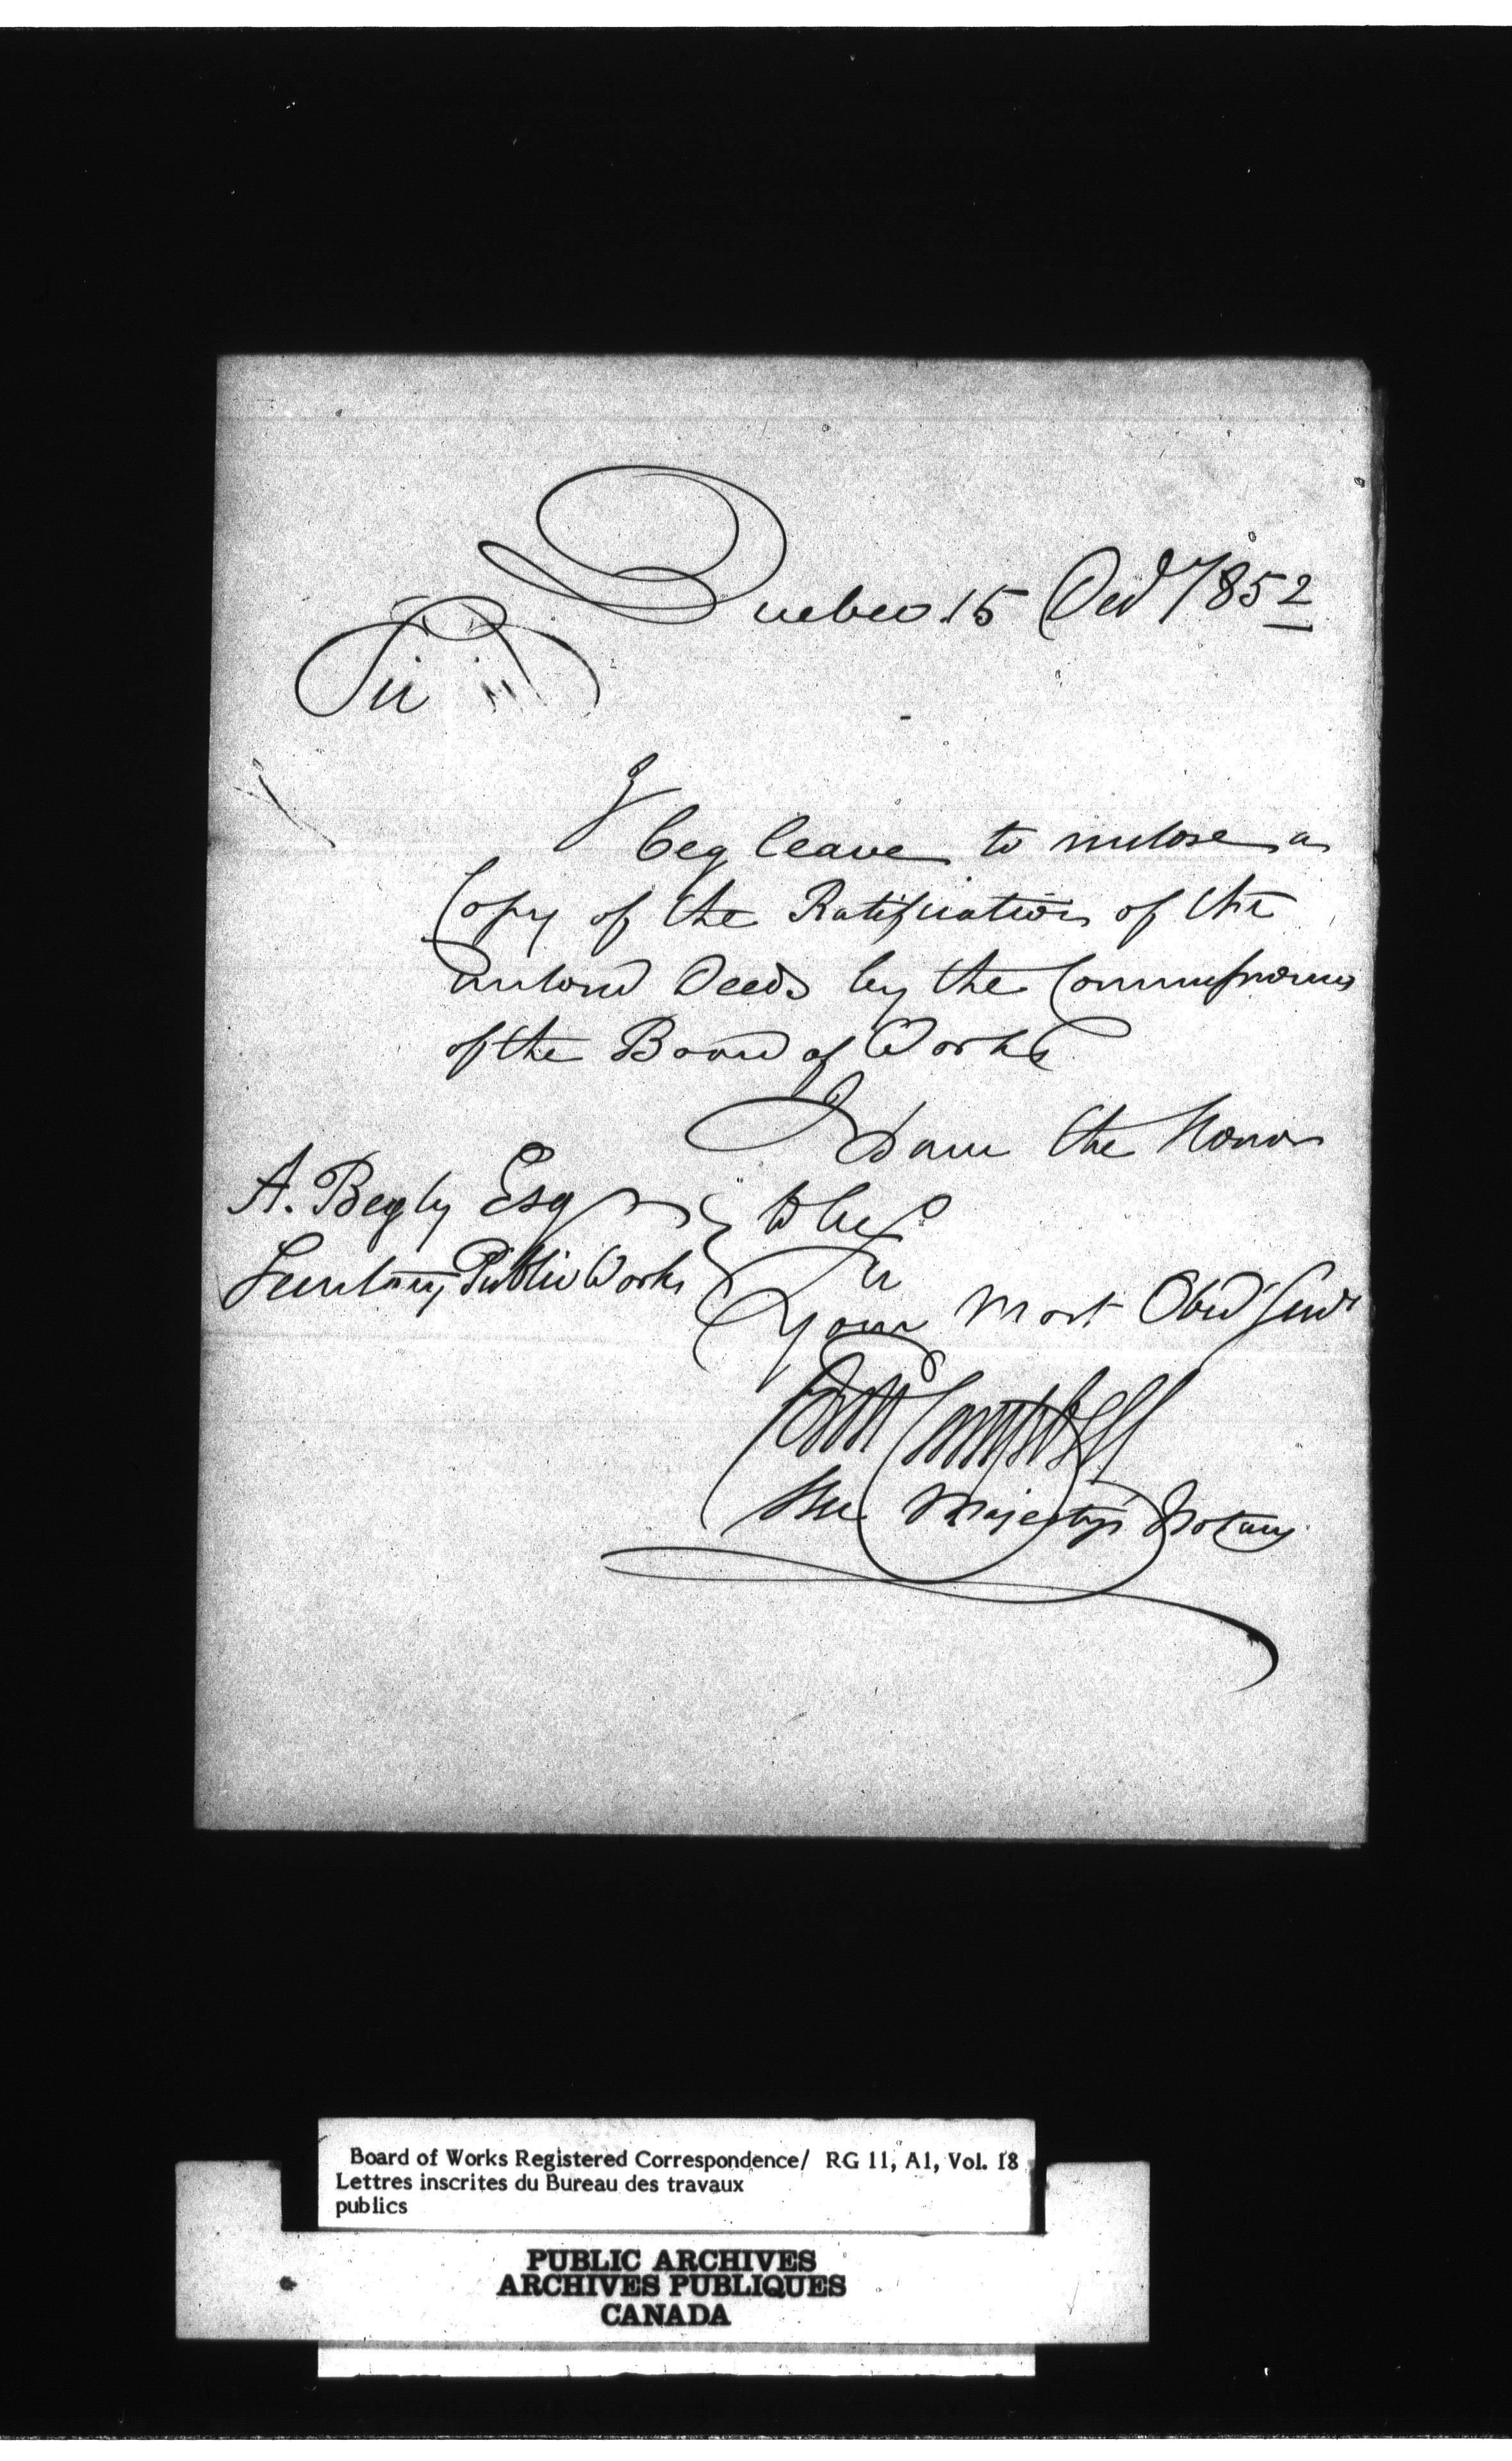 Quebec 15 Oct 1852
Sir
I
beg leave to inclose a
Copy of the Ratification of the
Deeds by the Commissioners
of the Board of Works
I have the Honor
to be
Sir
Your Most Obed Servt
A. Begly Esq
Secretary Public Works
Campbell
Her Majesty's Notary
Board of Works Registered Correspondence/ RG 11, A1, Vol. 18
Lettres inscrites du Bureau des travaux
publics
PUBLIC ARCHIVES
ARCHIVES PUBLIQUES
CANADA